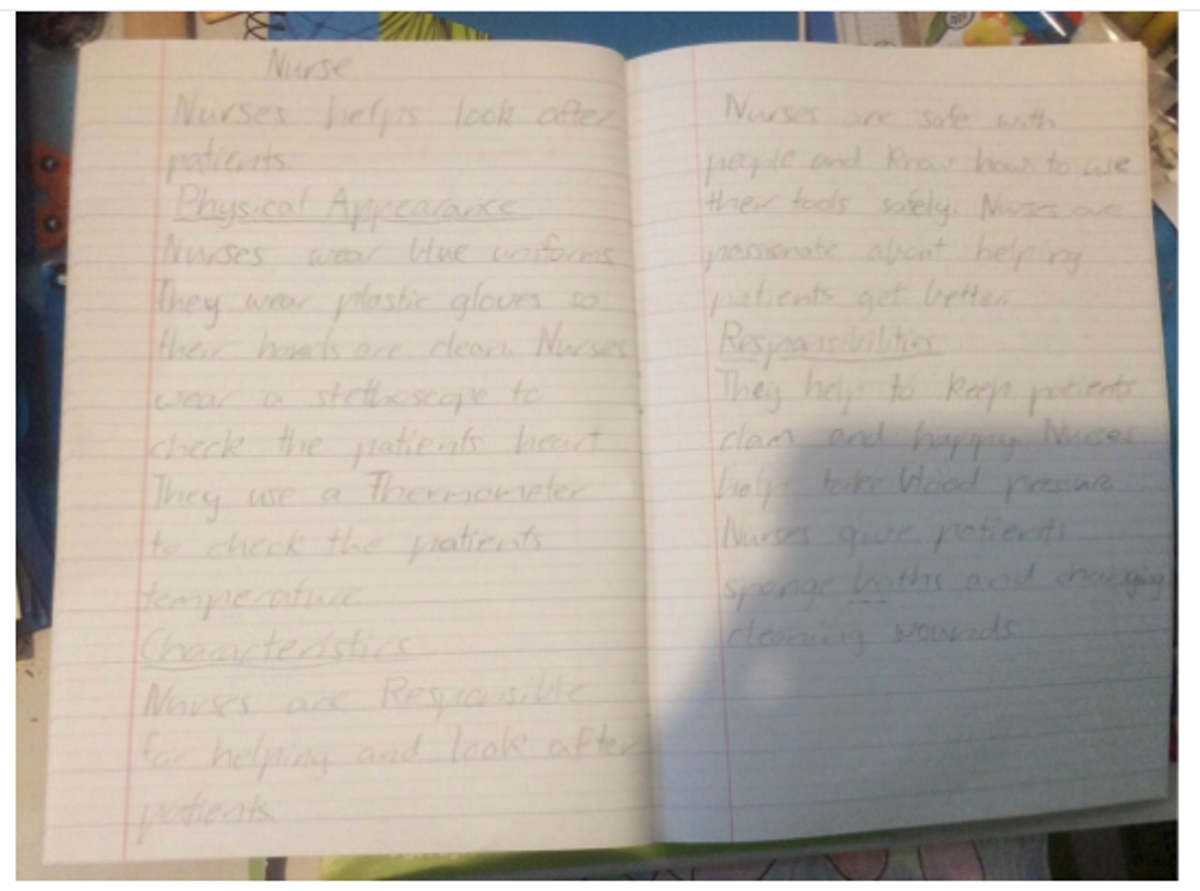 Nurse
Nurses helps look after
patients.
Physical Appearance
Nurses wear blue uniforms
They wear plastic gloves so
their hands are clean. Nurses
wear a stethoscope to
check the patients heart
They use a Thermometer
to check the patients
temperature
Characteristics
Nurses are Responsible
for helping and look after
patients
Nurses are safe with
people and know how to use
their tools safely. Nurses are
passionate about helping
patients get better.
Responsibilities
They help to keep patients
clam and happy. Nurses
help take blood pressure
Nurses give patients
sponge baths and changing
cleaning wounds